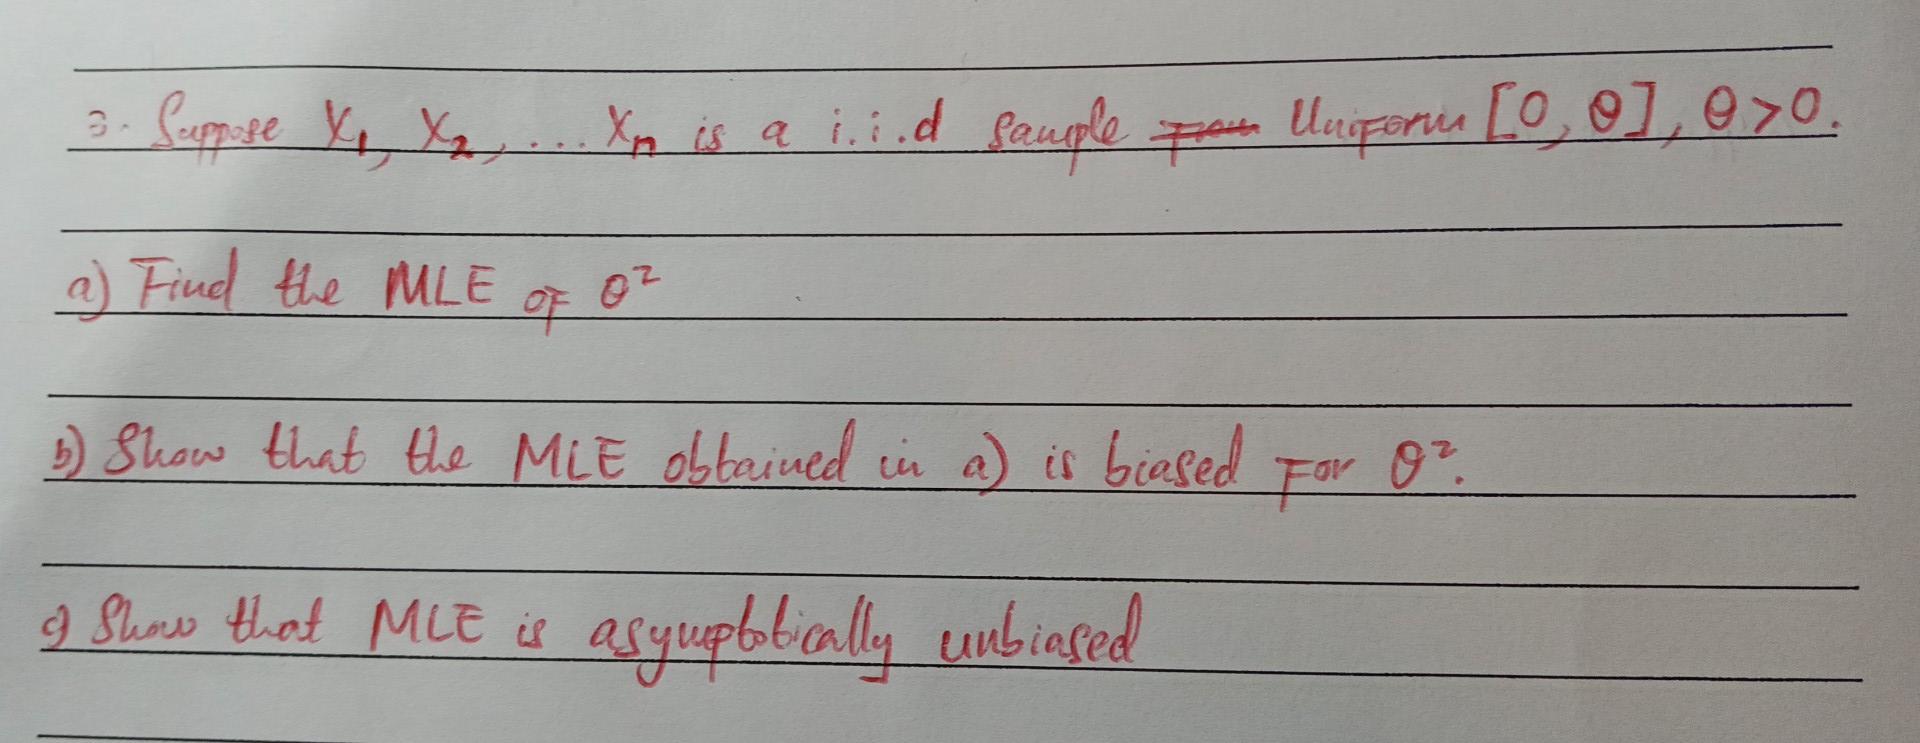 3. Suppose X₁, X₂, ... Xₙ is a i.i.d sample from Uniform [0, θ], θ>0.
a) Find the MLE of θ²
b) Show that the MLE obtained in a) is biased for θ².
c) Show that MLE is asymptotically unbiased